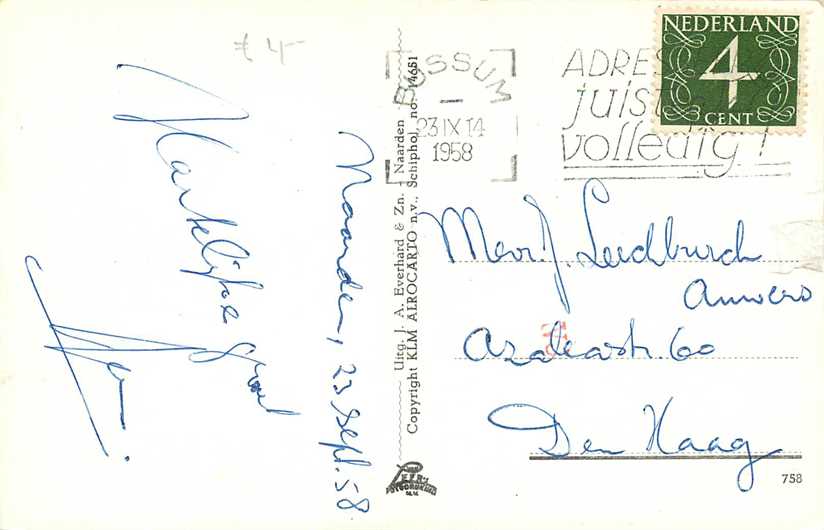 € 4,-
Naarden, 23 Sept. 58
Hartelijke groet
Uitg. J. A. Everhard & Zn., Naarden
Copyright KLM AEROCARTO n.v., Schiphol, no. 14651
BUSSUM
23 IX 14
1958
ADRES
juist
volledig!
NEDERLAND
4
CENT
Mevr. J.
Azaleastr. 60
Den Haag
VAN LEER'S
FOTODRUKIND.
N.V.
758